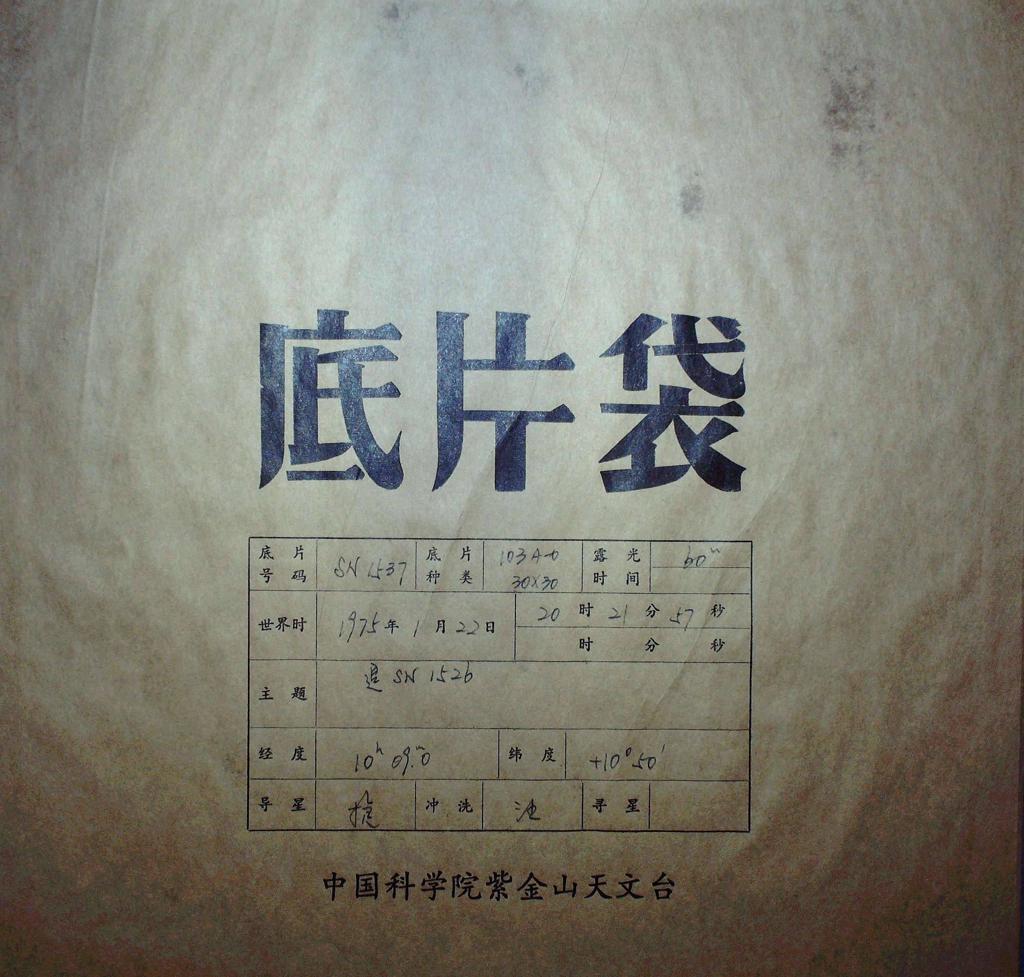 底片袋
底片号码 SN 1537 底片种类 103A-O 30X30 露光时间 60ᵐ
世界时 1975年1月22日 20时21分57秒
时 分 秒
主题 追 SN 1526
经度 10ʰ 09.ᵐ0 纬度 +10°50′
导星 冲洗 寻星
中国科学院紫金山天文台